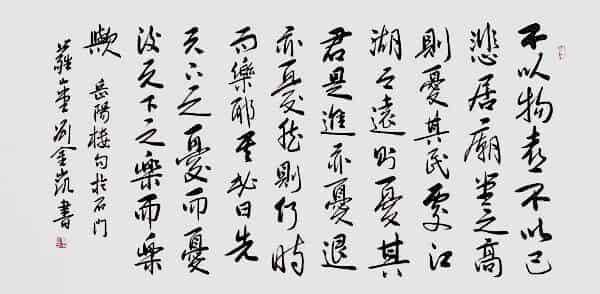 不以物喜不以己
悲居廟堂之高
則憂其民處江
湖之遠則憂其
君是進亦憂退
亦憂然則何時
而樂耶其必曰先
天下之憂而憂
後天下之樂而樂
歟 岳陽樓句於石門
劉金凱書